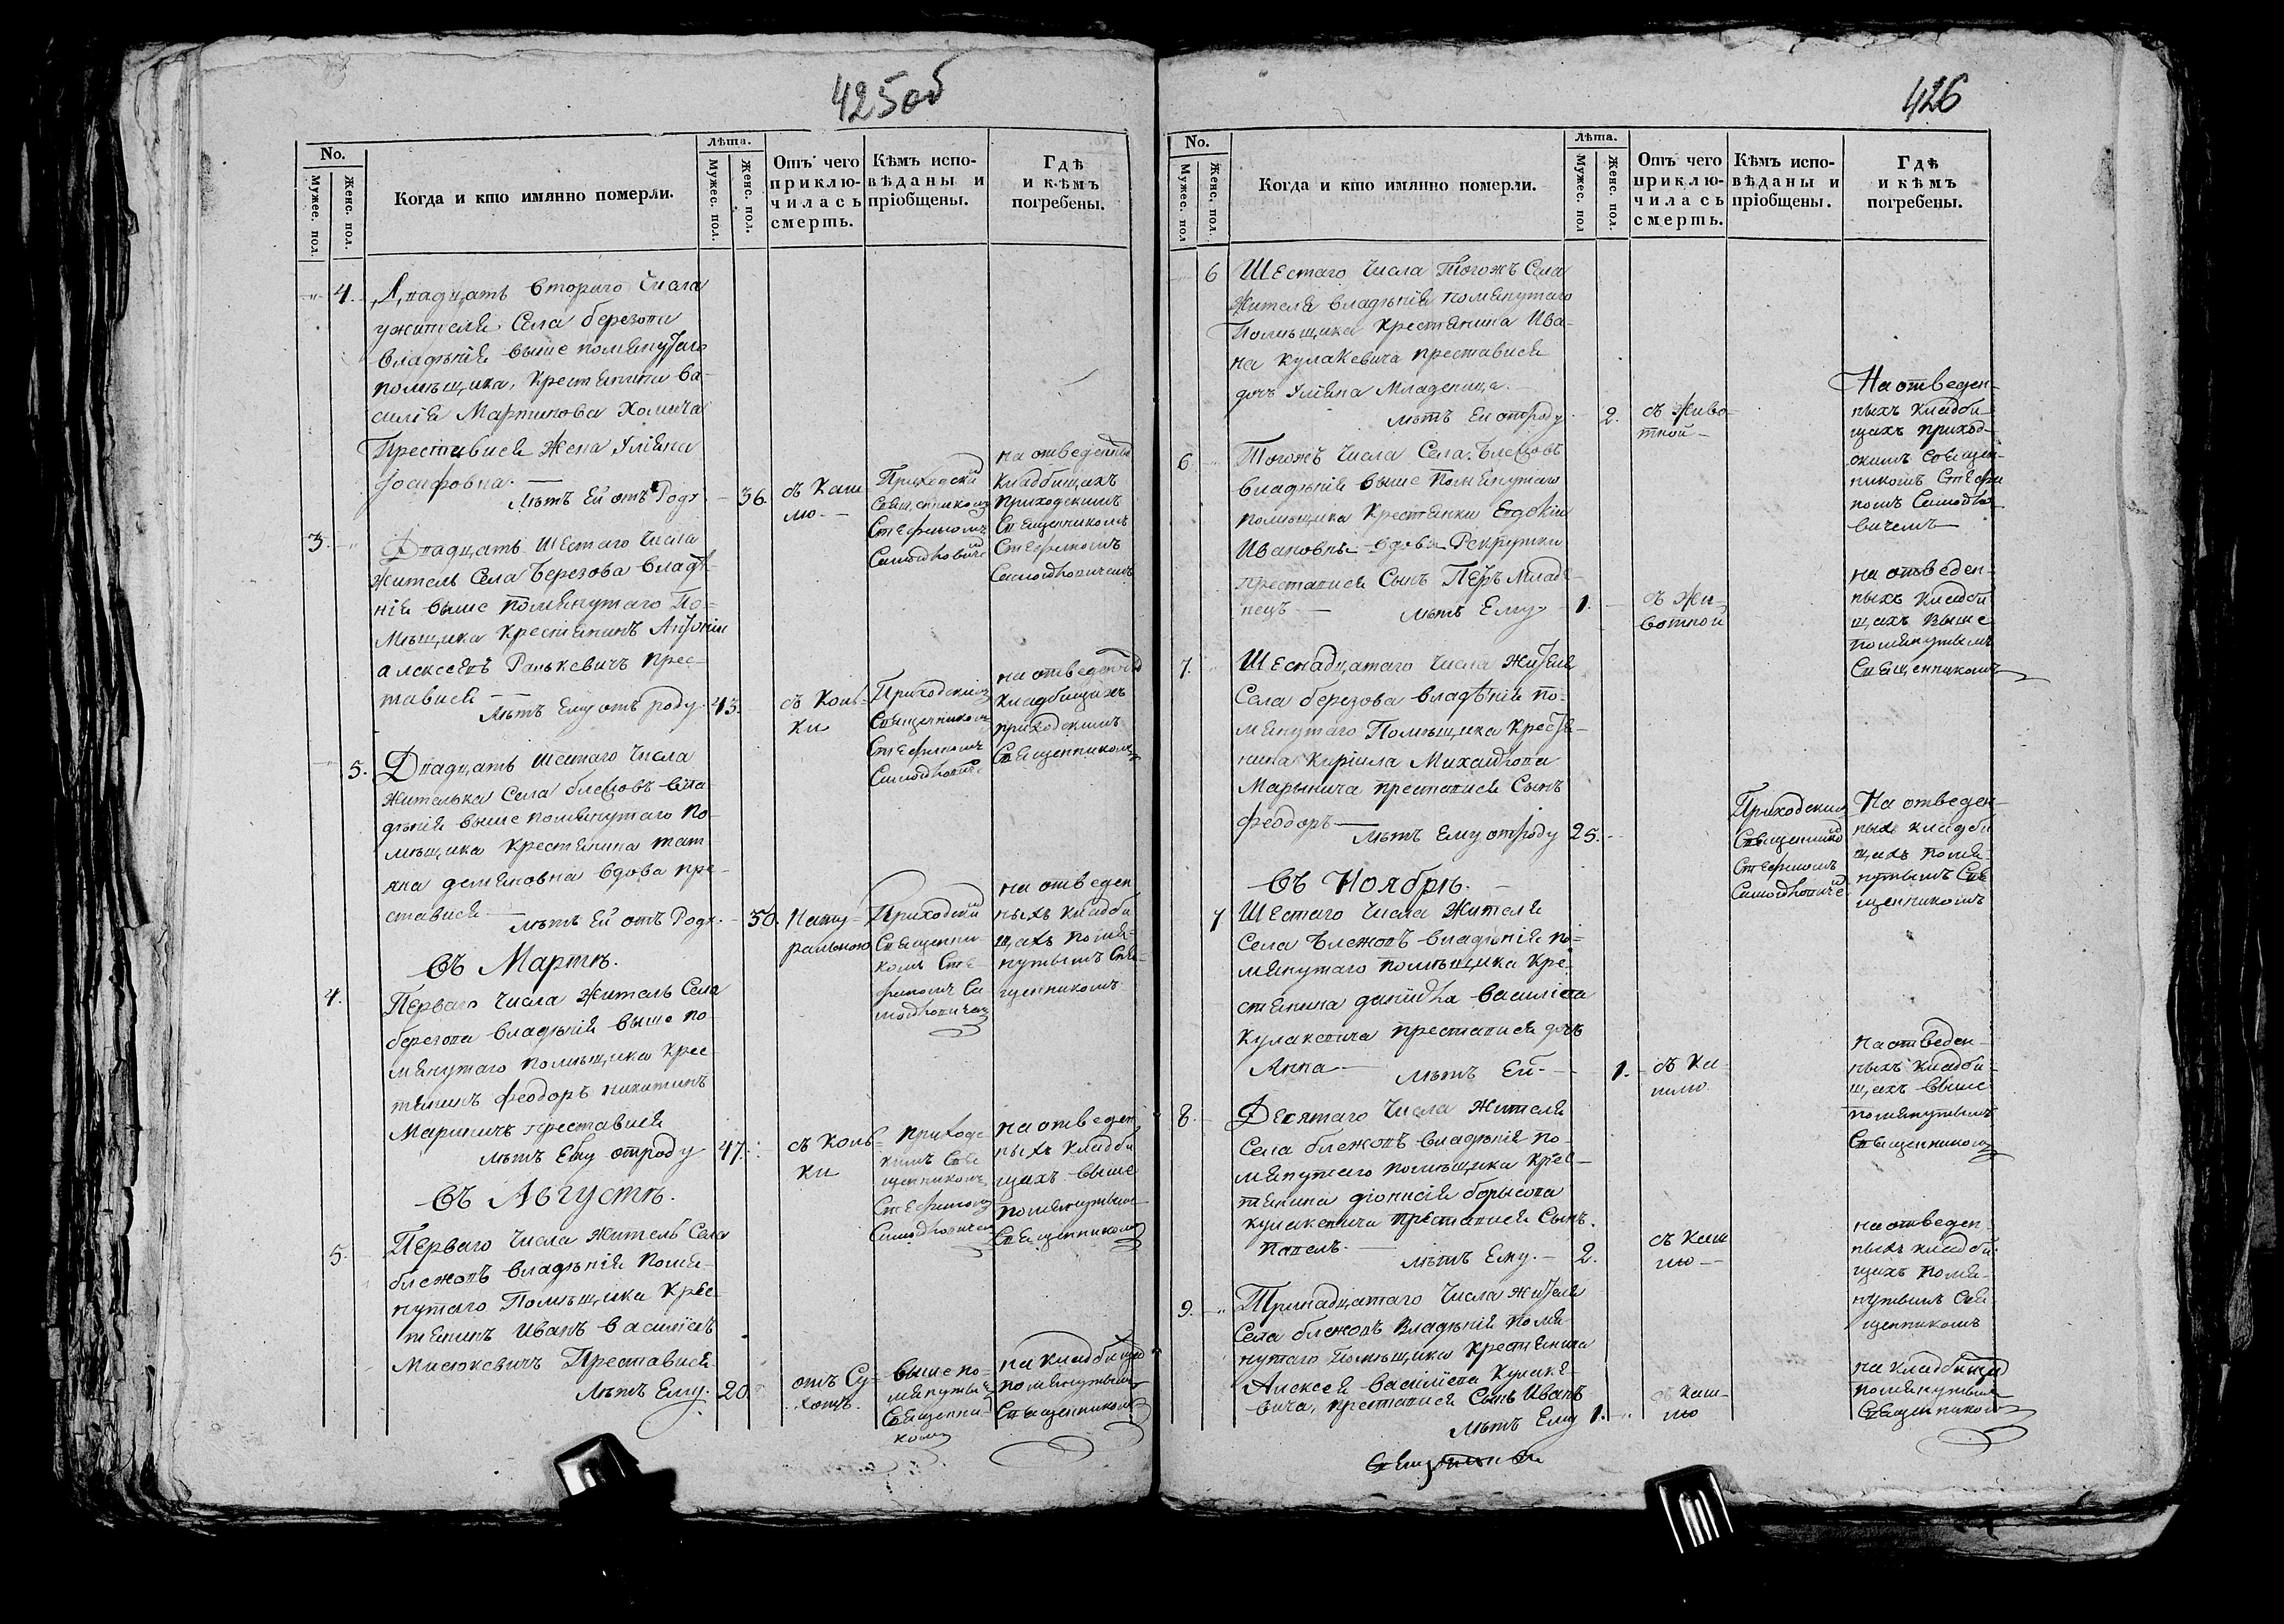 425об
No.
Мужес. пол.
Женс. пол.
Когда и кто имянно померли.
Лѣта.
Мужес. пол.
Женс. пол.
Отъ чего приклю-
чилась
смерть.
Кѣмъ испо-
вѣданы и
пріобщены.
Гдѣ
и кѣмъ
погребены.
4.
Двадцать втораго Числа
жителя Села березова
владѣнія выше помянутаго
помѣщика, крестянина Ва-
силія Мартинова Хомича
Преставися Жена Уліяна
Іосифовна.
Лѣтъ Ей отъ Роду
36.
съ Каш
лю.
Приходскій
Священникомъ
Стефаномъ
на отведенныхъ
Кладбищахъ
Приходскимъ
Священникомъ
Стефаномъ
3.
Двадцать шестаго Числа
житель Села Березова владѣ-
нія выше помянутаго По-
мѣщика Крестянинъ Антоній
алексеевъ Ранькевичъ прес-
тавися
Лѣтъ Ему отъ роду
43.
съ Коль-
ки
Приходскимъ
Священникомъ
Стефаномъ
на отведенныхъ
Кладбищахъ
приходскимъ
Священникомъ
5.
Двадцать шестаго Числа
жителька Села блежовъ вла-
дѣнія выше помянутаго По-
мѣщика Крестянина тат-
яна демяновна вдова пре-
ставися
лѣтъ Ей отъ Роду.
50.
Нату-
ральною
Приходскій
Священни-
комъ Сте-
фаномъ Са
на отведен
ныхъ кладби
щахъ помя-
нутымъ Свя-
щенникомъ
Въ Мартѣ.
4.
Перваго Числа житель Села
березова владѣнія выше по-
мянутаго помѣщика Крес-
тянинъ феодоръ никитинъ
Мариничъ преставися
лѣтъ Ему отроду
47.
съ Коль-
ки
приходс
кимъ Свя
щенникомъ
Стефаномъ
на отведен
ныхъ Кладби
щахъ выше
помянутымъ
Священникомъ
Въ Августѣ.
5.
Перваго Числа житель Села
блежовъ владѣнія помя-
нутаго Помѣщика Крес-
тянинъ Иванъ василіевъ
Мисюкевичъ Преставися
Лѣтъ Ему.
20.
отъ Су-
хотъ.
выше по-
мянутымъ
Священни-
комъ
на кладбищѣ
помянутымъ
Священникомъ
426
No.
Мужес. пол
Женс. пол.
Когда и кто имянно померли.
Лѣта.
Мужес. пол
Женс. пол.
Отъ чего
приклю-
чилась
смерть.
Кѣмъ испо-
вѣданы и
пріобщены.
Гдѣ
и кѣмъ
погребены.
6
Шестаго Числа Тогожъ Села
Жителя владѣнія помянутаго
Помѣщика Крестянина Ива-
на Кулакевича преставися
дочъ Уліяна Младеница.
лѣтъ Ей отроду
2.
съ Живо
тной
На отведен-
ныхъ кладби
щахъ приход-
скимъ Священ-
никомъ Стефа
номъ
6.
Тогожъ Числа Села Блежовъ
владѣнія выше Помянутаго
помѣщика Крестянки Евдокіи
Ивановны вдова Рекрутки
преставися Сынъ Петръ младе-
нецъ
лѣтъ Ему
1.
съ Жи-
вотной
на отведен-
ныхъ Кладби
щахъ выше
помянутымъ
Священникомъ
7.
Шеснадцатаго Числа Жителя
Села березова владѣнія по-
мянутаго Помѣщика Крестя-
нина Киріила Михайлова
Марынича преставися Сынъ
феодоръ
лѣтъ Ему отроду
25.
Приходскимъ
Священнико
Стефаномъ
На отведен-
ныхъ кладби
щахъ помя-
нутымъ Свя
щенникомъ
Въ Ноябрѣ.
7
Шестаго Числа Жителя
Села Блежовъ владѣнія по-
мянутаго помѣщика Кре-
стянина даніила василіева
Кулакевича преставися дочъ
Анна
лѣтъ Ей
1.
съ Ка
шлю
на отведен-
ныхъ Кладби-
щахъ выше
помянутымъ
Священникомъ
8.
Десятаго Числа Жителя
Села блежовъ владѣнія по-
мянутаго помѣщика Крес-
тянина діонисія борысова
кулакевича преставися Сынъ.
Павелъ.
лѣтъ Ему.
2.
съ Каш
лю
на отведен-
ныхъ кладби-
щахъ помя-
нутымъ Свя-
щенникомъ
9.
Тринадцатаго Числа жителя
Села блежовъ Владѣнія помя-
нутаго Помѣщика Крестянина
Алексея василіева Кулаке-
вича, преставися Сынъ Иванъ
лѣтъ Ему
1.
съ Каш-
лю
на кладбищѣ
помянутымъ
Священникомъ